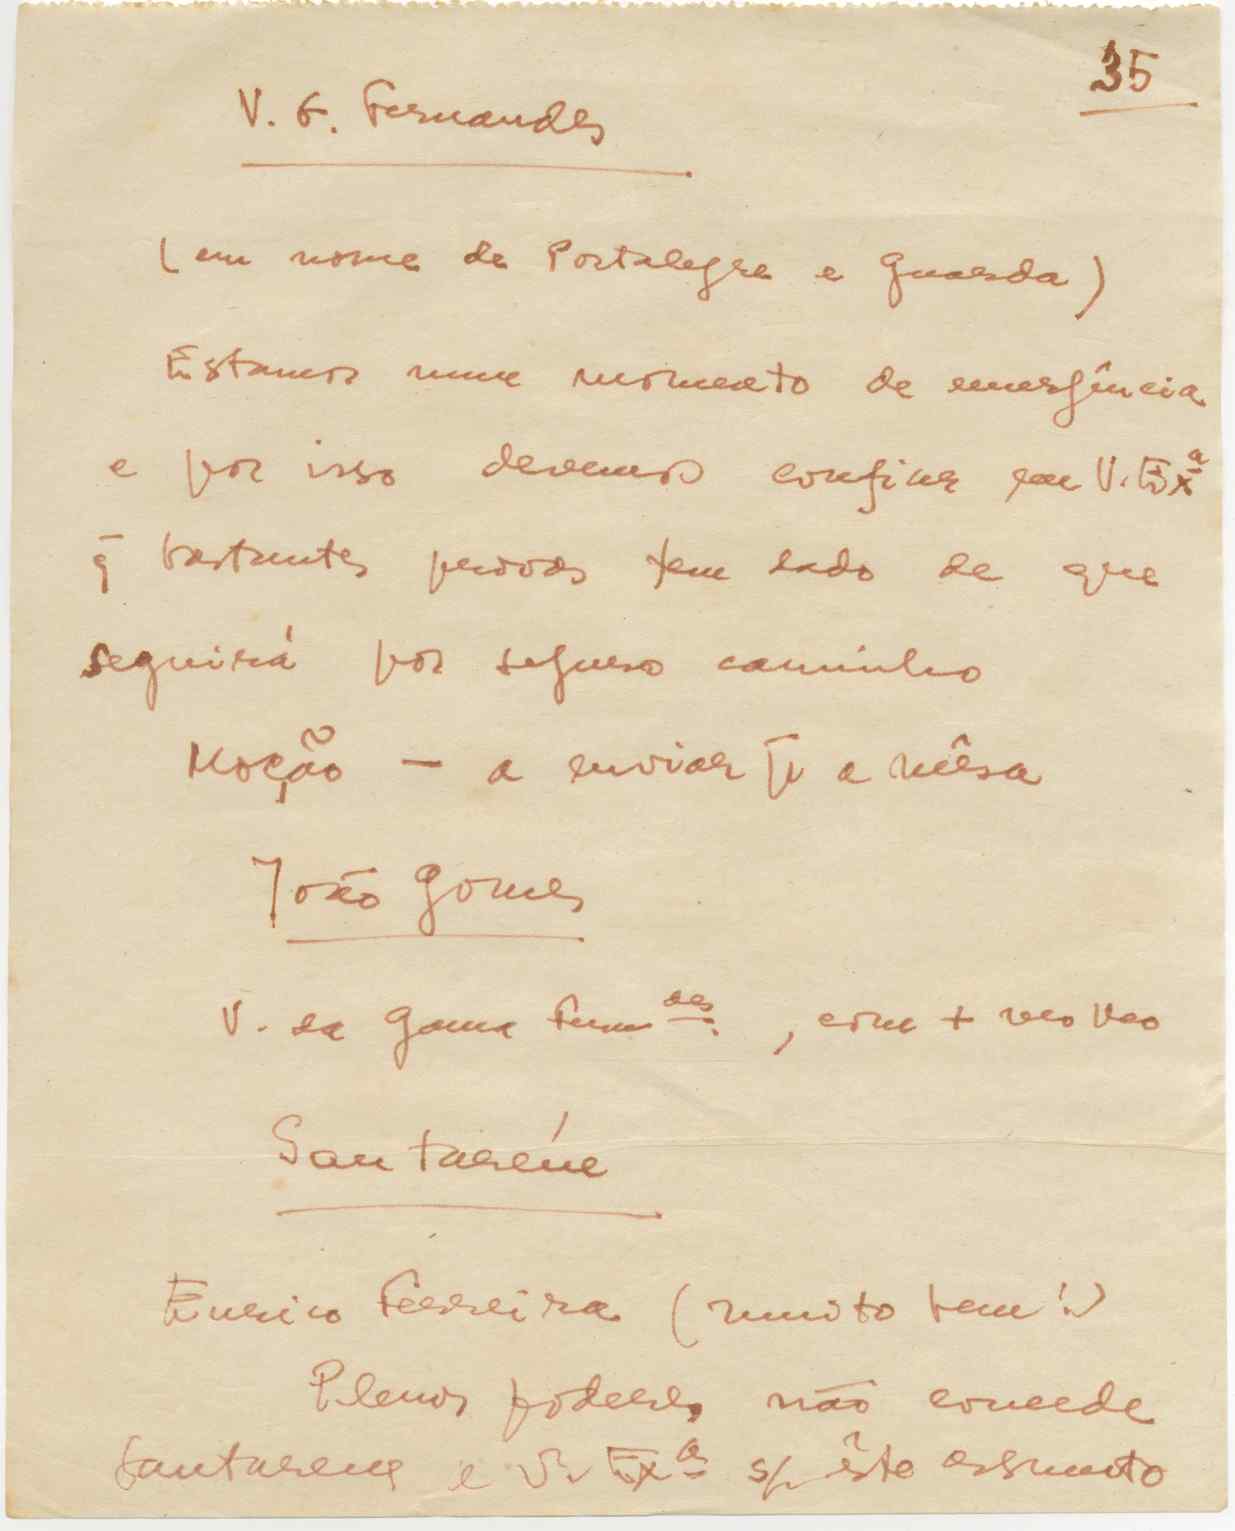 35
V. G. Fernandes
(em nome de Portalegre e Guarda)
Estamos num momento de emergência
e por isso devemos confiar em V. Exª
q̄ bastantes provas tem dado de que
seguirá por seguro caminho
Moção — a enviar p̄ a mêsa
João Gomes
V. da Gama Ferndes. , com +
Santarém
Eurico Ferreira (muito bem!)
Plenos poderes, não concede
Santarem a V. Exas s/ êste assunto